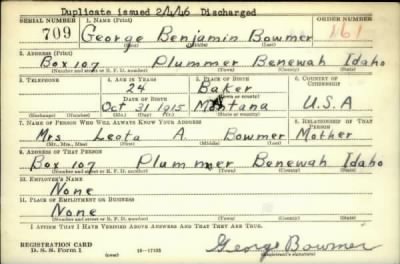 Duplicate issued 2/1/46 Discharged
SERIAL NUMBER 1. NAME (Print) ORDER NUMBER
709 George Benjamin Bowmer 161
(First) (Middle) (Last)
2. ADDRESS (Print)
Box 107 Plummer Benewah Idaho
(Number and street or R. F. D. number) (Town) (County) (State)
3. TELEPHONE 4. AGE IN YEARS 5. PLACE OF BIRTH 6. COUNTRY OF CITIZENSHIP
24 Baker
DATE OF BIRTH (Town or county)
Oct 31 1915 Montana U.S.A
(Exchange) (Number) (Mo.) (Day) (Yr.) (State or country)
7. NAME OF PERSON WHO WILL ALWAYS KNOW YOUR ADDRESS 8. RELATIONSHIP OF THAT PERSON
Mrs Leota A. Bowmer Mother
(Mr., Mrs., Miss) (First) (Middle) (Last)
9. ADDRESS OF THAT PERSON
Box 107 Plummer Benewah Idaho
(Number and street or R. F. D. number) (Town) (County) (State)
10. EMPLOYER'S NAME
None
11. PLACE OF EMPLOYMENT OR BUSINESS
None
(Number and street or R. F. D. number) (Town) (County) (State)
I AFFIRM THAT I HAVE VERIFIED ABOVE ANSWERS AND THAT THEY ARE TRUE.
REGISTRATION CARD
D. S. S. Form 1 (over) 16—17105 George Bowmer
(Registrant's signature)